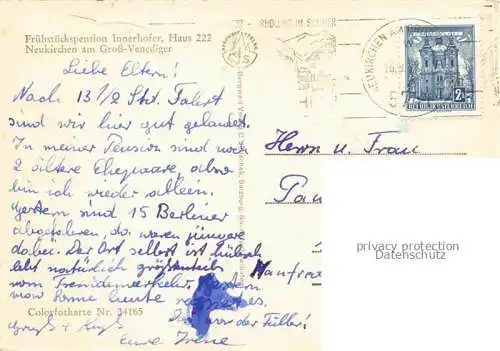 Frühstückspension Innerhofer, Haus 222
Neukirchen am Groß-Venediger
Liebe Eltern!
Nach 13 1/2 Std. Fahrt
sind wir hier gut gelandet.
In meiner Pension sind noch
2 ältere Ehepaare, also
bin ich wieder allein.
Gestern sind 15 Berliner
abgefahren, da waren jüngere
dabei. Der Ort selbst ist hübsch
lebt natürlich größtenteils
vom Fremdenverkehr. Gestern
und heute
war der Füller!
Gruß + Kuß
Eure Irene
Colorfotokarte Nr. 24165
NEUKIRCHEN A
REPUBLIK ÖSTERREICH
Herrn u. Frau
Pau
privacy protection
Datenschutz